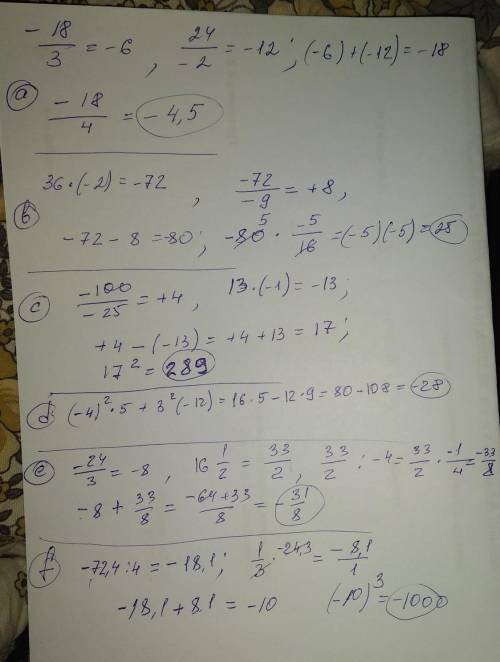 -18/3 = -6 , 24/-2 = -12 ; (-6)+(-12) = -18
a) -18/4 = -4,5
36·(-2) = -72 , -72/-9 = +8 ,
b) -72 - 8 = -80 ; -80 · -5/16 = (-5)(-5) = 25
c) -100/-25 = +4 , 13·(-1) = -13 ;
+4 - (-13) = +4 + 13 = 17 ;
17² = 289
d) (-4)²·5 + 3²(-12) = 16·5 - 12·9 = 80 - 108 = -28
e) -24/3 = -8 , 16 1/2 = 33/2 , 33/2 : -4 = 33/2 · -1/4 = -33/8
-8 + 33/8 = -64+33/8 = -31/8
f) -72,4 : 4 = -18,1 ; 1/3 · -24,3 = -8,1/1
-18,1 + 8.1 = -10 (-10)³ = -1000